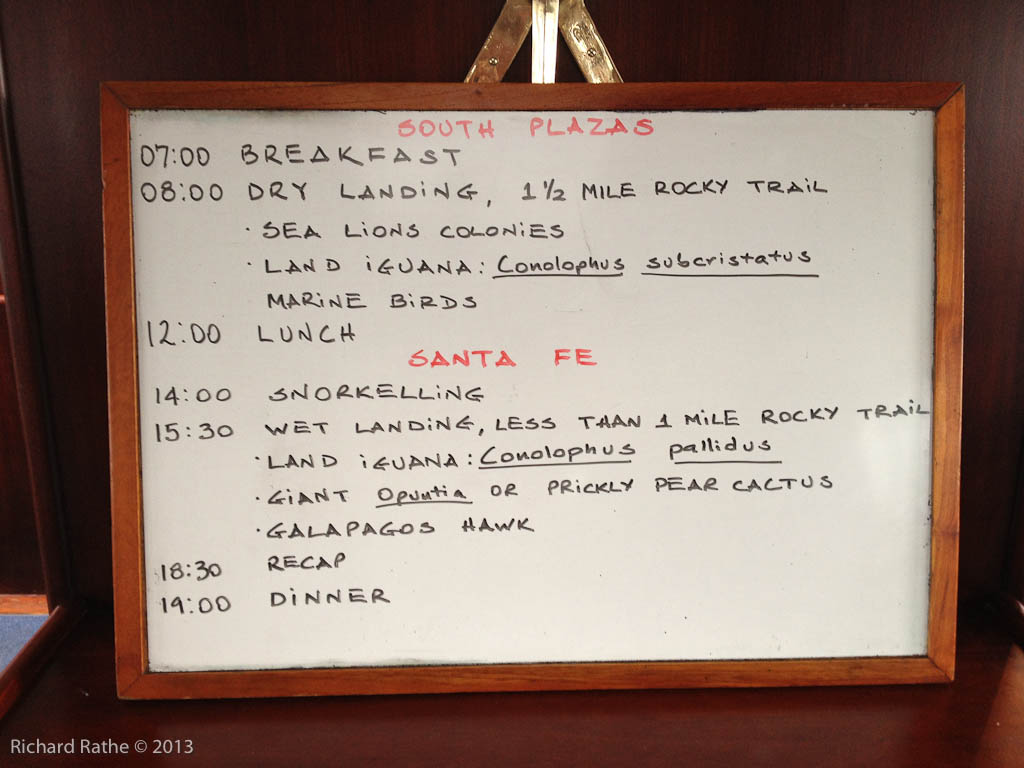 SOUTH PLAZAS
07:00 BREAKFAST
08:00 DRY LANDING, 1 1/2 MILE ROCKY TRAIL
· SEA LIONS COLONIES
· LAND IGUANA: Conolophus subcristatus
MARINE BIRDS
12:00 LUNCH
SANTA FE
14:00 SNORKELLING
15:30 WET LANDING, LESS THAN 1 MILE ROCKY TRAIL
· LAND IGUANA: Conolophus pallidus
· GIANT Opuntia OR PRICKLY PEAR CACTUS
· GALAPAGOS HAWK
18:30 RECAP
19:00 DINNER
Richard Rathe © 2013